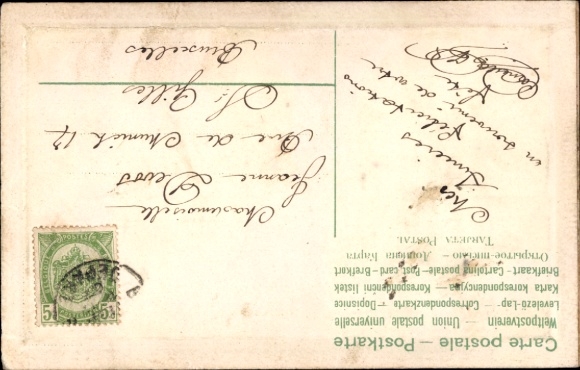 Carte postale – Postkarte
Weltpostverein – Union postale universelle
Levelező-Lap – Correspondenzkarte – Dopisnice
Karta korespondencyjna – Korespondenční lístek
Briefkaart – Cartolina postale – Post card – Brefkort
Открытое письмо – Дописна Карта
TARJETA POSTAL
Chère
Amies
Félicitations
en souvenir de votre
fête
Mademoiselle
Jeanne Devos
Rue de Munich 12
St Gilles
Bruxelles
5